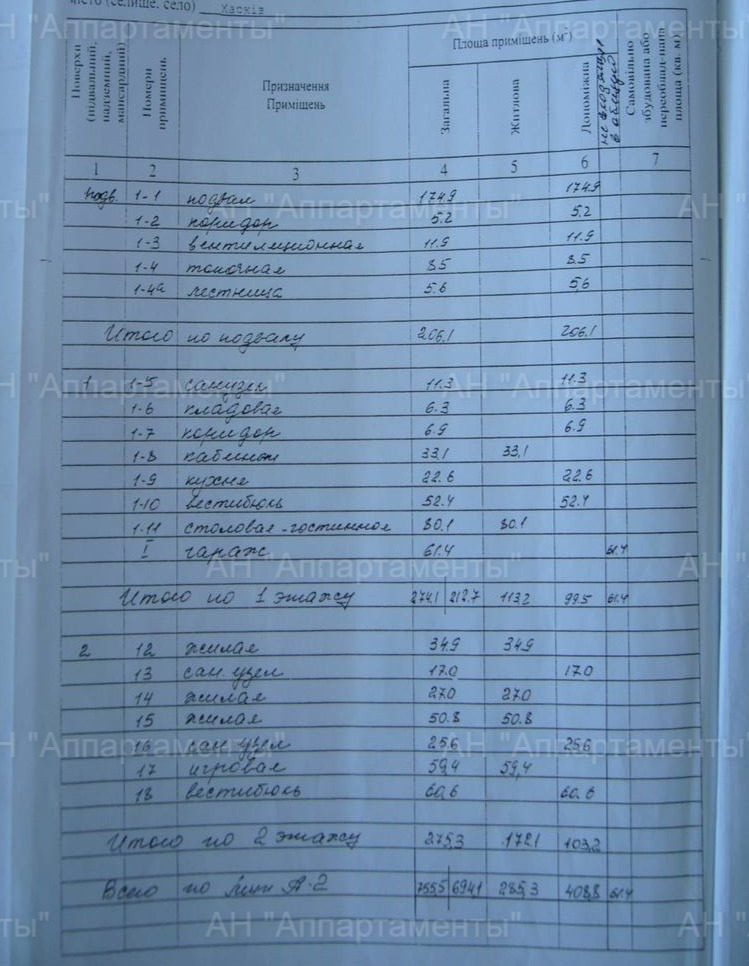 місто (селище, село) Харків
Поверхи (підвальний, надземний, мансардний)
Номери приміщень
Призначення Приміщень
Площа приміщень (м²)
Загальна
Житлова
Допоміжна
не входящая в общую
Самовільно збудована або переобладнана площа (кв. м)
1 2 3 4 5 6 7
подв. 1-1 подвал 174.9 174.9
1-2 коридор 5.2 5.2
1-3 вентиляционная 11.9 11.9
1-4 топочная 8.5 8.5
1-4а лестница 5.6 5,6
Итого по подвалу 206,1 206,1
1 1-5 санузел 11.3 11.3
1-6 кладовая 6.3 6.3
1-7 коридор 6.9 6.9
1-8 кабинет 33,1 33,1
1-9 кухня 22.6 22.6
1-10 вестибюль 52.4 52.4
1-11 столовая-гостинная 80.1 80.1
I гараж 61.4 61.4
Итого по 1 этажу 274.1 212.7 113.2 99.5 61.4
2 12 жилая 34.9 34.9
13 сан. узел 17.0 17.0
14 жилая 27.0 27.0
15 жилая 50.8 50.8
16 сан. узел 25.6 25.6
17 игровая 59,4 59,4
18 вестибюль 60,6 60.6
Итого по 2 этажу 275,3 172.1 103,2
Всего по лит А-2 755,5 694,1 285,3 408,8 61.4
АН "Аппартаменты"